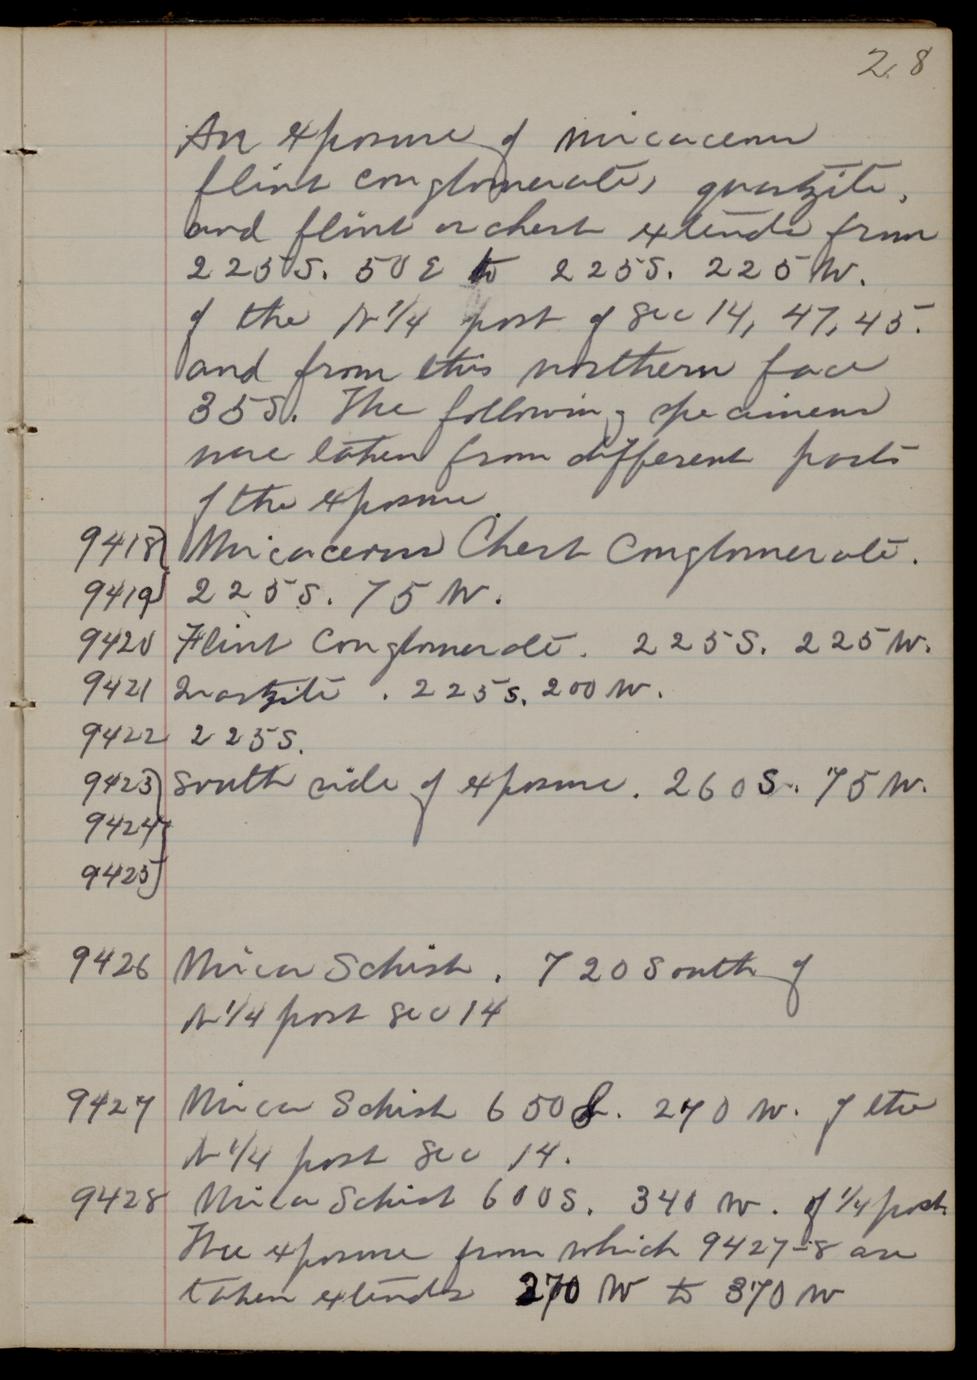 28
An exposure of micaceous
flint conglomerate, quartzite,
and flint or chert extends from
225S. 50E to 225S. 225W.
of the N 1/4 post of Sec 14, 47, 45.
and from this northern face
35S. The following specimens
were taken from different parts
of the exposure.
9418} Micaceous Chert Conglomerate.
9419} 225S. 75W.
9420 Flint Conglomerate. 225S. 225W.
9421 Quartzite. 225S. 200W.
9422 225S.
9423} South side of exposure. 260S. 75W.
9424}
9425}
9426 Mica Schist. 720 South of
N 1/4 post Sec 14
9427 Mica Schist 650S. 270W. of the
N 1/4 post Sec 14.
9428 Mica Schist 600S. 340W. of 1/4 post.
The exposure from which 9427-8 are
taken extends 270W to 370W